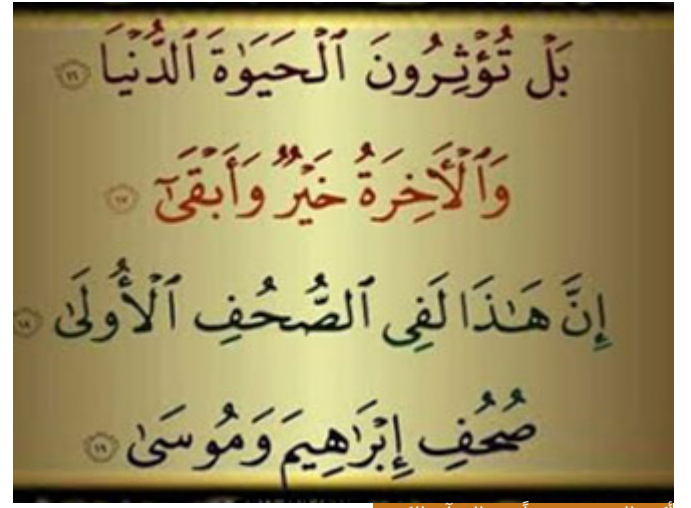 بَلْ تُؤْثِرُونَ ٱلْحَيَوٰةَ ٱلدُّنْيَا ١٦
وَٱلْأَخِرَةُ خَيْرٌ وَأَبْقَىٰٓ ١٧
إِنَّ هَـٰذَا لَفِى ٱلصُّحُفِ ٱلْأُولَىٰ ١٨
صُحُفِ إِبْرَٰهِيمَ وَمُوسَىٰ ١٩